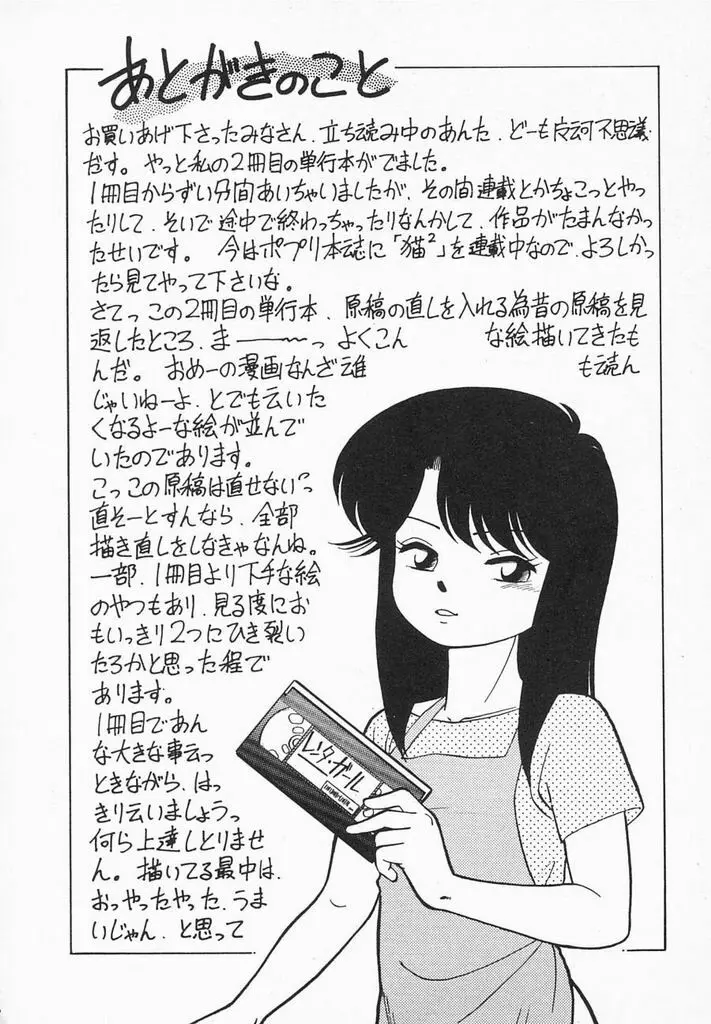 あとがきのこと
お買いあげ下さったみなさん、立ち読み中のあんた、どーも反河不思議
だす。 やっと私の2冊目の単行本がでました。
1冊目からずい分間あいちゃいましたが、その間連載とかちょこっとやっ
たりして、そいで途中で終わっちゃったりなんかして、作品がたまんなかっ
たせいです。 今はポプリ本誌に「猫²」を連載中なので、よろしかっ
たら見てやって下さいな。
さてっこの2冊目の単行本、原稿の直しを入れる為昔の原稿を見
返したところ、ま———〜っ よくこん な絵描いてきたも
んだ。 おめーの漫画なんざ誰 も読ん
じゃいねーよ、とでも云いた
くなるよーな絵が並んで
いたのであります。
こっこの原稿は直せないっ
直そーとすんなら、全部
描き直しをしなきゃなんね。
一部、1冊目より下手な絵
のやつもあり、見る度にお
もいっきり2つにひき裂い
たろかと思った程で
あります。
1冊目であん
な大きな事云っ
ときながら、はっ
きり云いましょうっ
何ら上達しとりませ
ん。 描いてる最中は、
おっやったやった、うま
いじゃん、と思って
レンタ・ガール